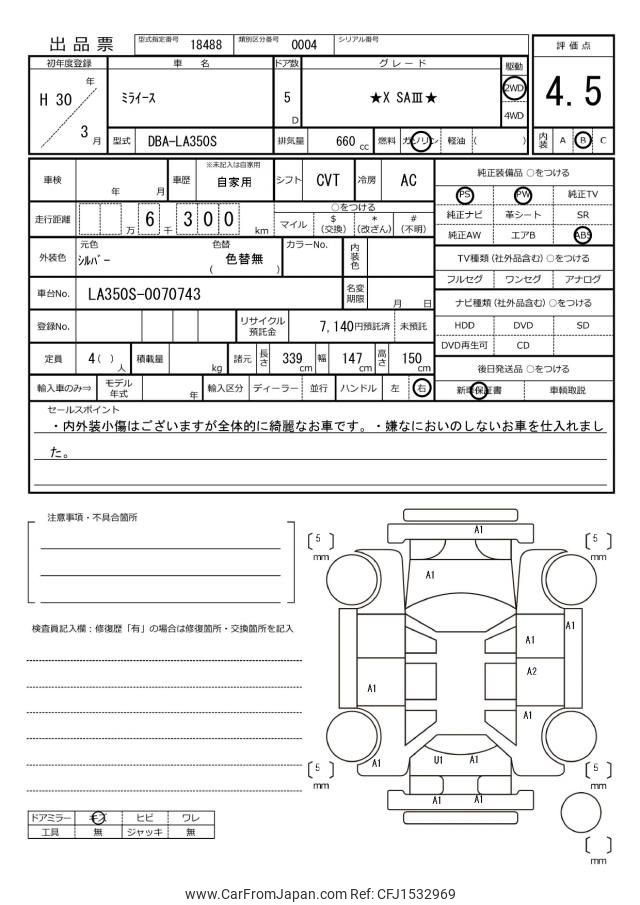 出品票
型式指定番号 18488 類別区分番号 0004 シリアル番号
評価点
4.5
内装 A B C
初年度登録 車名 ドア数 グレード 駆動
H 30 年
3 月
ﾐﾗｲｰｽ
5 D
★X SAⅢ★
2WD
4WD
型式 DBA-LA350S 排気量 660 cc 燃料 ガソリン 軽油 ( )
車検 年 月 車歴 ※未記入は自家用 自家用 シフト CVT 冷房 AC
走行距離 万 6 千 3 0 0 km
○をつける
マイル $ (交換) * (改ざん) # (不明)
外装色 元色 ｼﾙﾊﾞｰ 色替 ( 色替無 ) カラーNo. 内装色
車台No. LA350S-0070743 名変期限 月 日
登録No. リサイクル預託金 7,140円預託済 未預託
定員 4 ( ) 人 積載量 kg 諸元 長さ 339 cm 幅 147 cm 高さ 150 cm
輸入車のみ⇒ モデル年式 年 輸入区分 ディーラー ・ 並行 ハンドル 左 右
純正装備品 ○をつける
PS PW 純正TV
純正ナビ 革シート SR
純正AW エアB ABS
TV種類 (社外品含む) ○をつける
フルセグ ワンセグ アナログ
ナビ種類 (社外品含む) ○をつける
HDD DVD SD
DVD再生可 CD
後日発送品 ○をつける
新車保証書 車輌取説
セールスポイント
・内外装小傷はございますが全体的に綺麗なお車です。・嫌なにおいのしないお車を仕入れまし
た。
注意事項・不具合箇所
検査員記入欄：修復歴「有」の場合は修復箇所・交換箇所を記入
ドアミラー キズ ヒビ ワレ
工具 無 ジャッキ 無
A1
5 mm
5 mm
A1
A1
A1
A2
A1
A1
A1
U1 A1
5 mm
5 mm
A1 A1
mm
www.CarFromJapan.com Ref: CFJ1532969